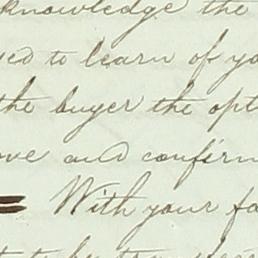 knowledge the
ed to learn of yo
the buyer the opt
ove and confirm
= With your fa